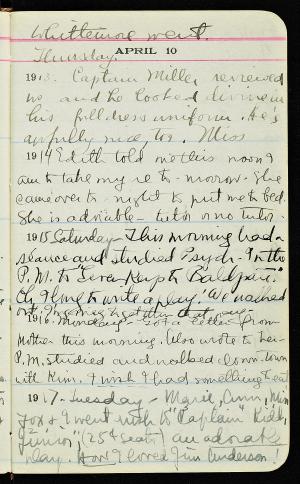 Whittemore went.
Thursday.
APRIL 10
1913. Captain Miller reviewed
us and he looked divine in
his full dress uniform. He's
awfully nice, too. Miss
1914 Edith told mother's noon I
am to take my re to-morrow. She
came over to-night to put me to bed.
She is adorable – tutor or no tutor.
1915 Saturday – This morning had a
seance and studied Psych. In the
P.M. to "Seven Keys to Baldpate."
Oh, I long to write a play. We walked
out.
1916. Monday – Got a letter from
Mother this morning. Also wrote to her –
P.M. studied and walked down-town
with Kim. I wish I had something to eat
1917 – Tuesday – Marie, Ann, Min
Fox & I went up to "Captain Kidd,
Junior", (25¢ seats) an adorable
play. How I loved Jim Anderson!